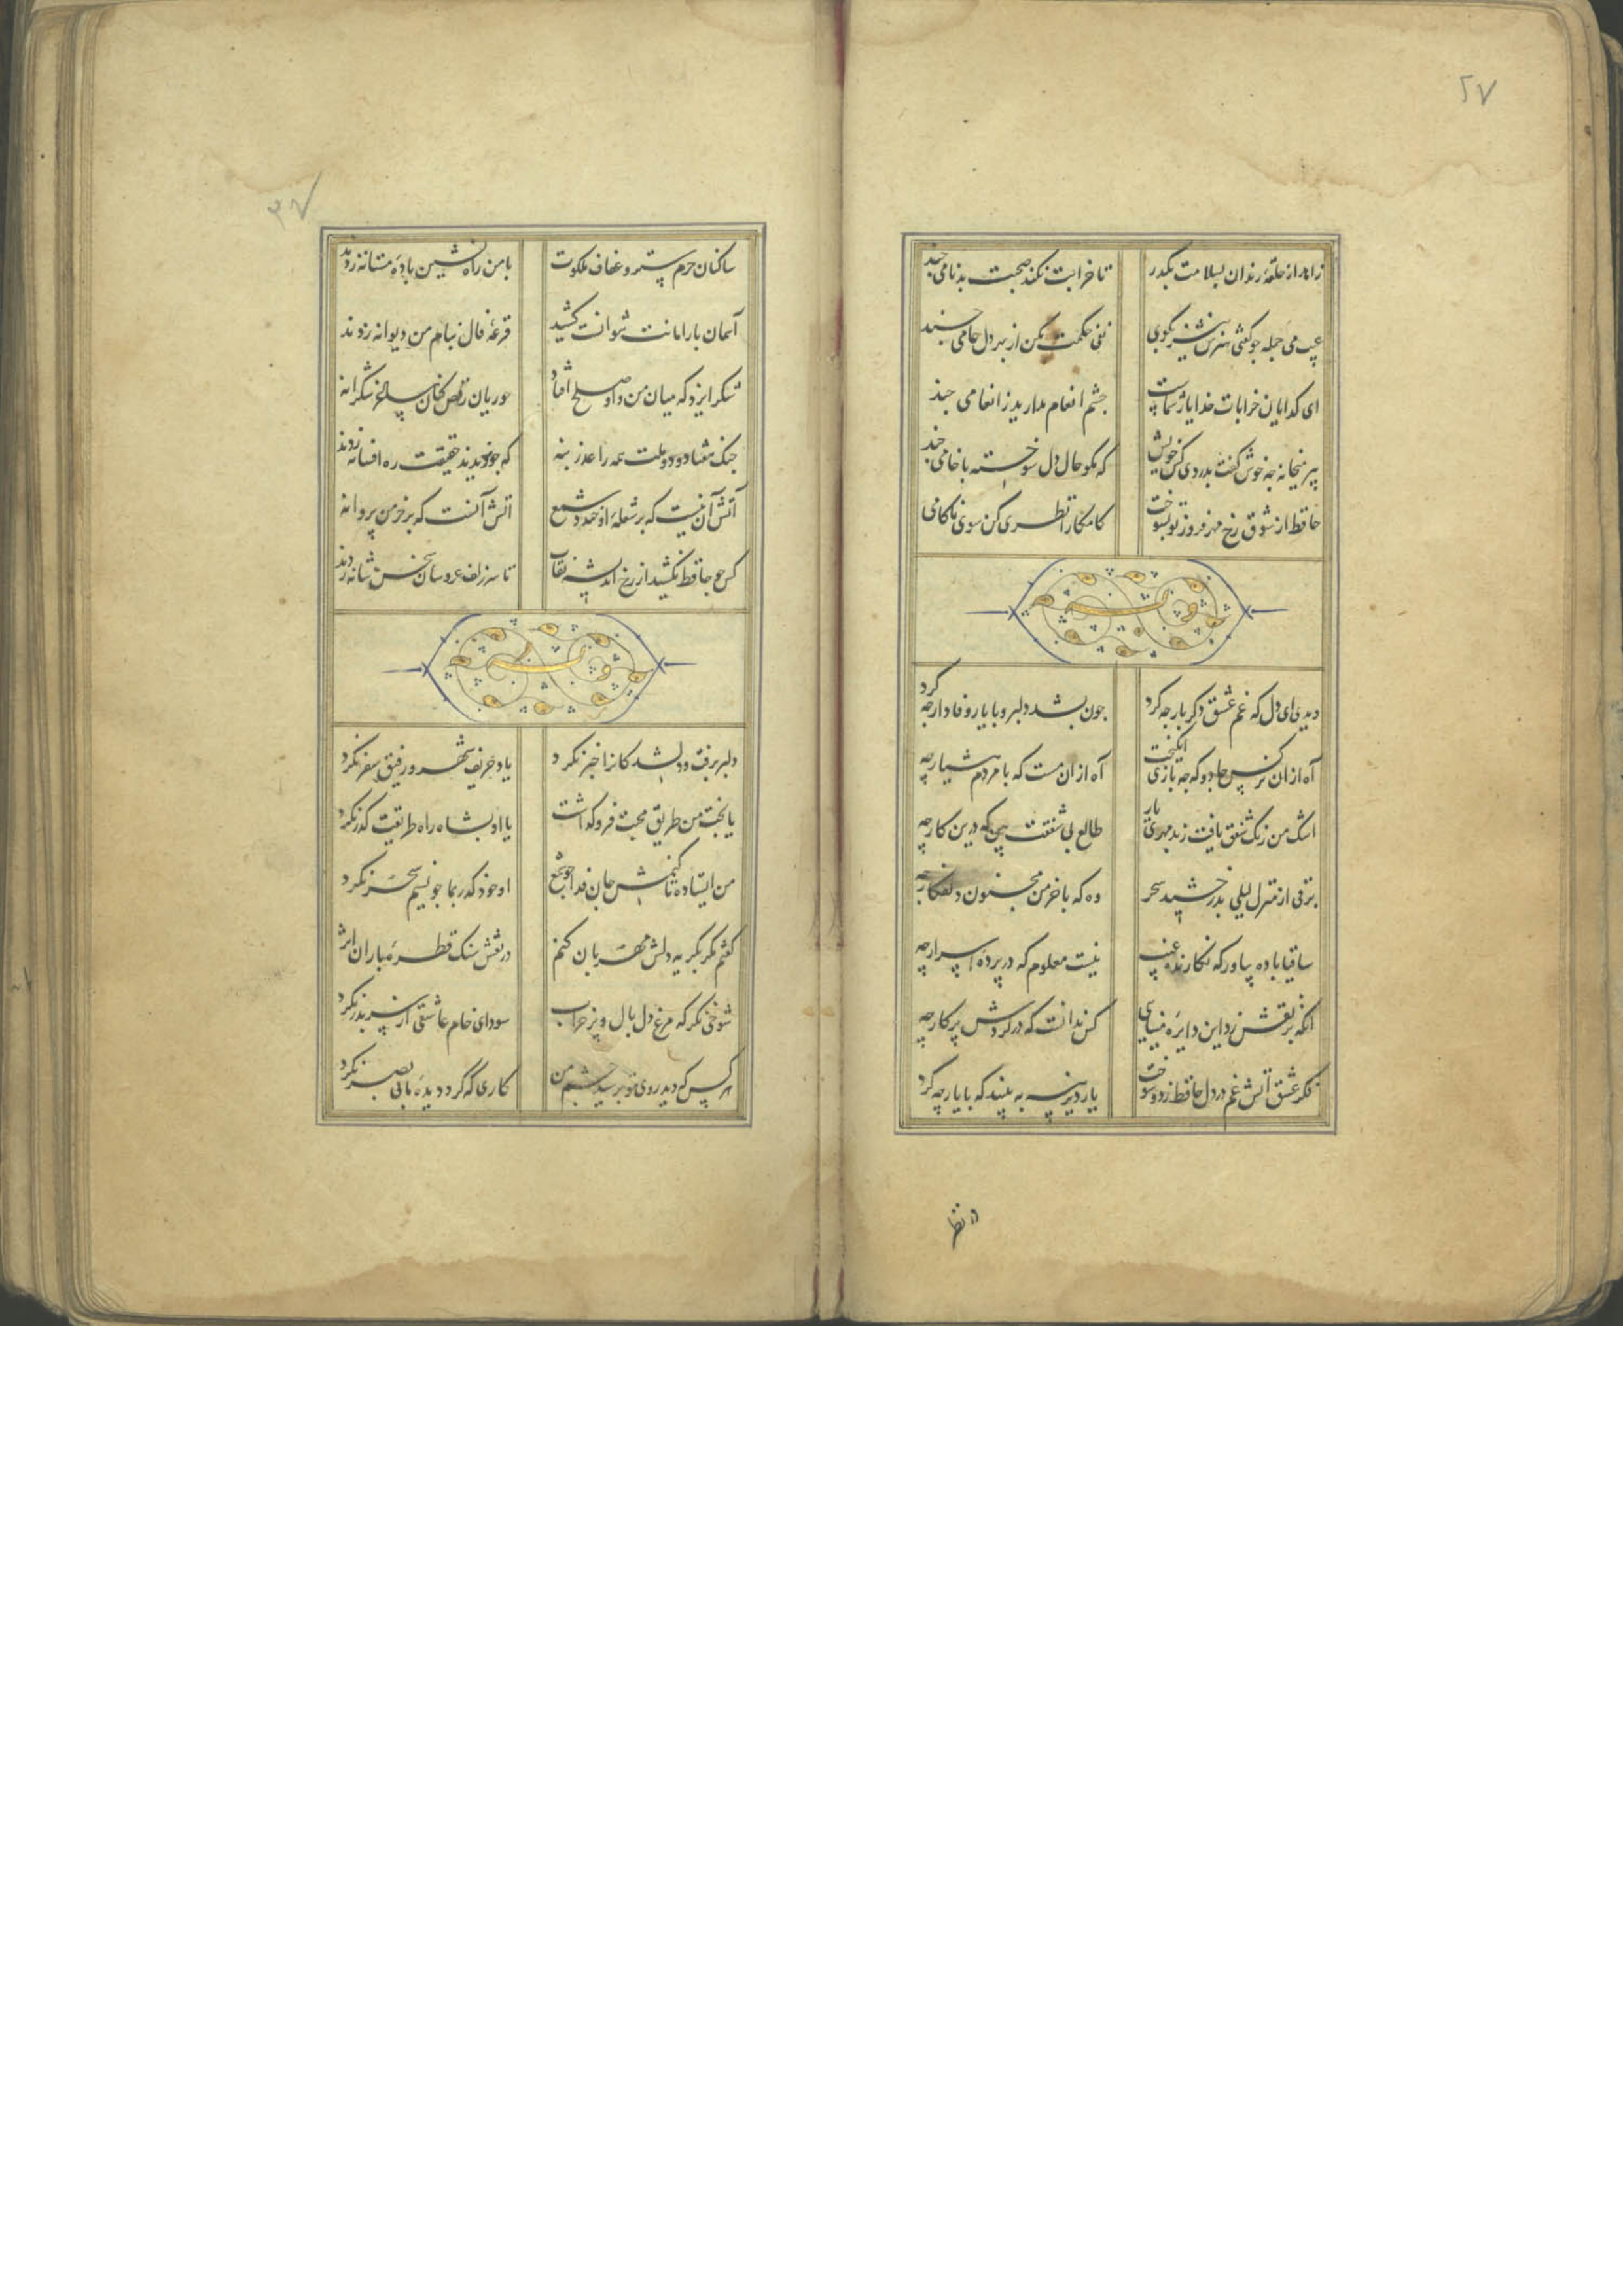 ٢٧
زاهد از حلقهٔ رندان بسلامت بگذر تا خرابت نکند صحبت بدنامی چند
عیب می جمله چو گفتی هنرش نیز بگوی نفی حکمت مکن از بهر دل عامی چند
ای گدایان خرابات خدا یار شماست چشم انعام مدارید ز انعامی چند
پیر میخانه چه خوش گفت بدردی کش خویش که مگو حال دل سوخته با خامی چند
حافظ از شوق رخ مهر فروز تو بسوخت کامکارا نظری کن سوی ناکامی
وله
دیدی ای دل که غم عشق دگر بار چه کرد چون بشد دلبر و با یار وفادار چه کرد
آه ازان نرکس جادو که چه بازی انگیخت آه ازان مست که با مردم هشیار چه
اشک من رنگ شفق یافت ز بی مهری یار طالع بی شفقت بین که درین کار چه
برقی از منزل لیلی بدرخشید سحر وه که با خرمن مجنون دلفکار چه
ساقیا باده بیاور که نگارندهٔ غیب نیست معلوم که در پردهٔ اسرار چه
انکه بر نقش زد این دایرهٔ مینایی کس ندانست که در گردش پرکار چه
فکر عشق آتش غم در دل حافظ زد و سوخت یار دیرینه ببینید که با یار چه کرد
ساکنان حرم ستر و عفاف ملکوت با من راه نشین بادهٔ مستانه زدند
آسمان بار امانت نتوانست کشید قرعهٔ فال بنام من دیوانه زدند
شکر ایزد که میان من و او صلح افتاد حوریان رقص کنان ساغر شکرانه
جنک هفتاد و دو ملت همه را عذر بنه که چو ندیدند حقیقت ره افسانه زدند
آتش آن نیست که بر شعلهٔ او خندد شمع اتش آنست که بر خرمن پروانه
کس چو حافظ نکشید از رخ اندیشه نقاب تا سر زلف عروسان سخن شانه زدند
وله
دلبر برفت و دلشدگانرا خبر نکرد یاد حریف شهر و رفیق سفر نکرد
یا بخت من طریق محبت فرو گذاشت یا او بشاه راه طریقت گذر نکرد
من ایستاده تا کنمش جان فدا چو شمع او خود گذر بما چو نسیم سحر نکرد
گفتم مگر بگریه دلش مهربان کنم در نقش سنک قطرهٔ باران اثر
شوخی نگر که مرغ دل بال و پر خراب سودای خام عاشقی از سر بدر نکرد
هر کس که دید روی تو بوسید چشم من کاری که کرد دیدهٔ ما بی بصر نکرد